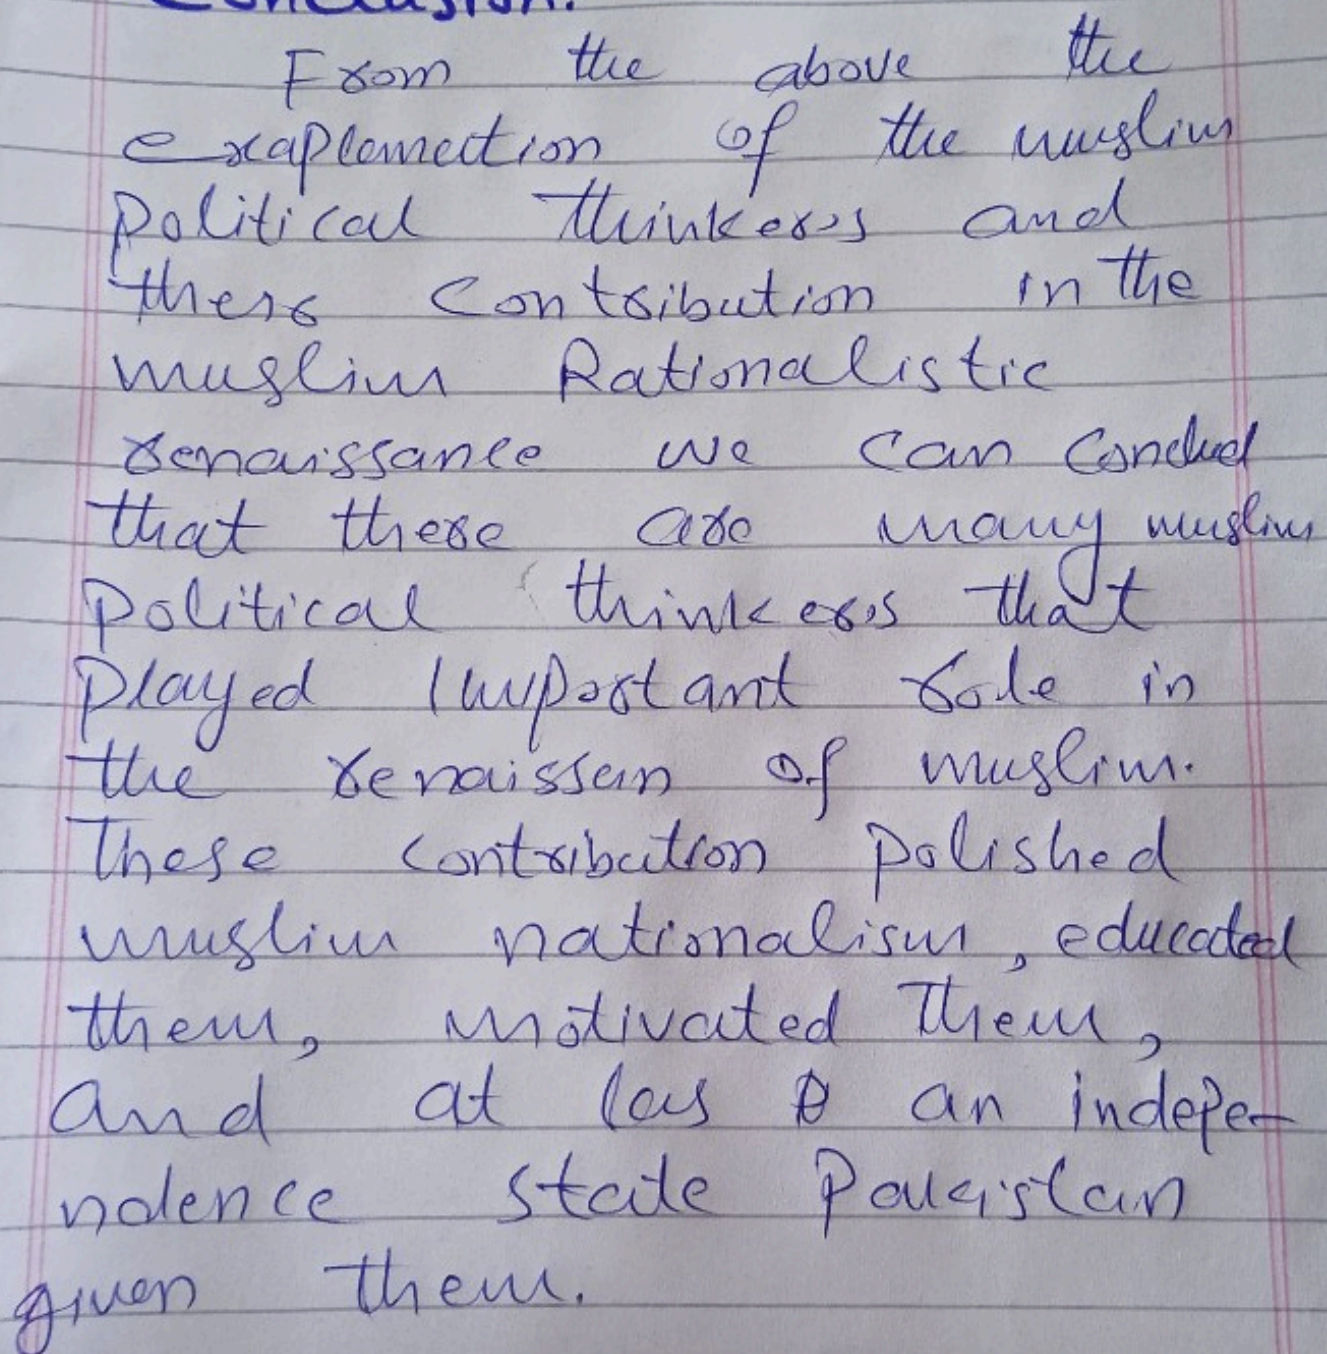 Conclusion:
From the above the
exaplemection of the muslim
Political thinkers and
thers contribution in the
muslim Rationalistic
renaissance we can conclud
that there are many muslim
Political thinkers that
played important role in
the renaissan of muslim.
These contribution polished
muslim nationalism, educated
them, motivated them,
and at las an indepe-
ndence state Pakistan
given them.